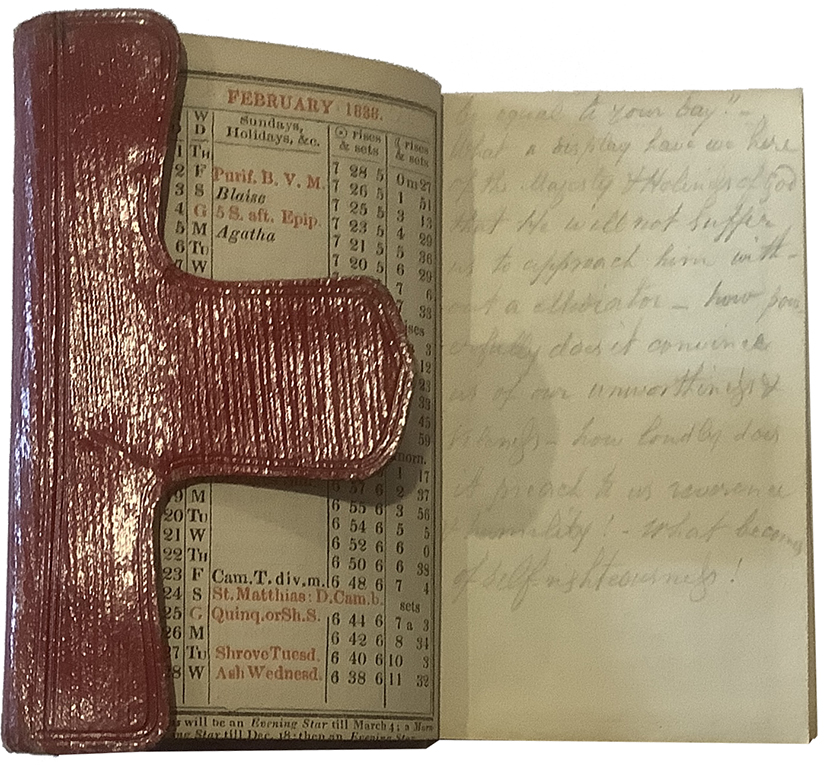 FEBRUARY 1838.
W D Sundays, Holidays, &c. ☉ rises & sets ☾ rises & sets
1 Th 7 28 5 0m27
2 F Purif. B. V. M. 7 26 5 1 51
3 S Blaise 7 25 5 3 13
4 G 5 S. aft. Epip. 7 23 5 4 29
5 M Agatha 7 21 5 5 36
6 Tu 7 20 5 6 29
7 W 7 6
7 33
ises
3
12
23
33
45
59
morn.
1 17
6 57 6 2 37
19 M 6 55 6 3 56
20 Tu 6 54 6 5 5
21 W 6 52 6 6 0
22 Th 6 50 6 6 38
23 F Cam. T. div. m. 6 48 6 7 4
24 S St. Matthias: D. Cam. b. sets
25 G Quinq. or Sh. S. 6 44 6 7 a 3
26 M 6 42 6 8 34
27 Tu Shrove Tuesd. 6 40 6 10 3
28 W Ash Wednesd. 6 38 6 11 32
will be an Evening Star till March 4; a Morn
ing Star till Dec. 18: then an Evening Star
be equal to your day" -
What a display have we here
of the Majesty & Holiness of God
that He will not suffer
us to approach him with-
out a Mediator - how pow-
erfully does it convince
us of our unworthiness &
vileness - how loudly does
it preach to us reverence
& humility! - What becomes
of self righteousness!